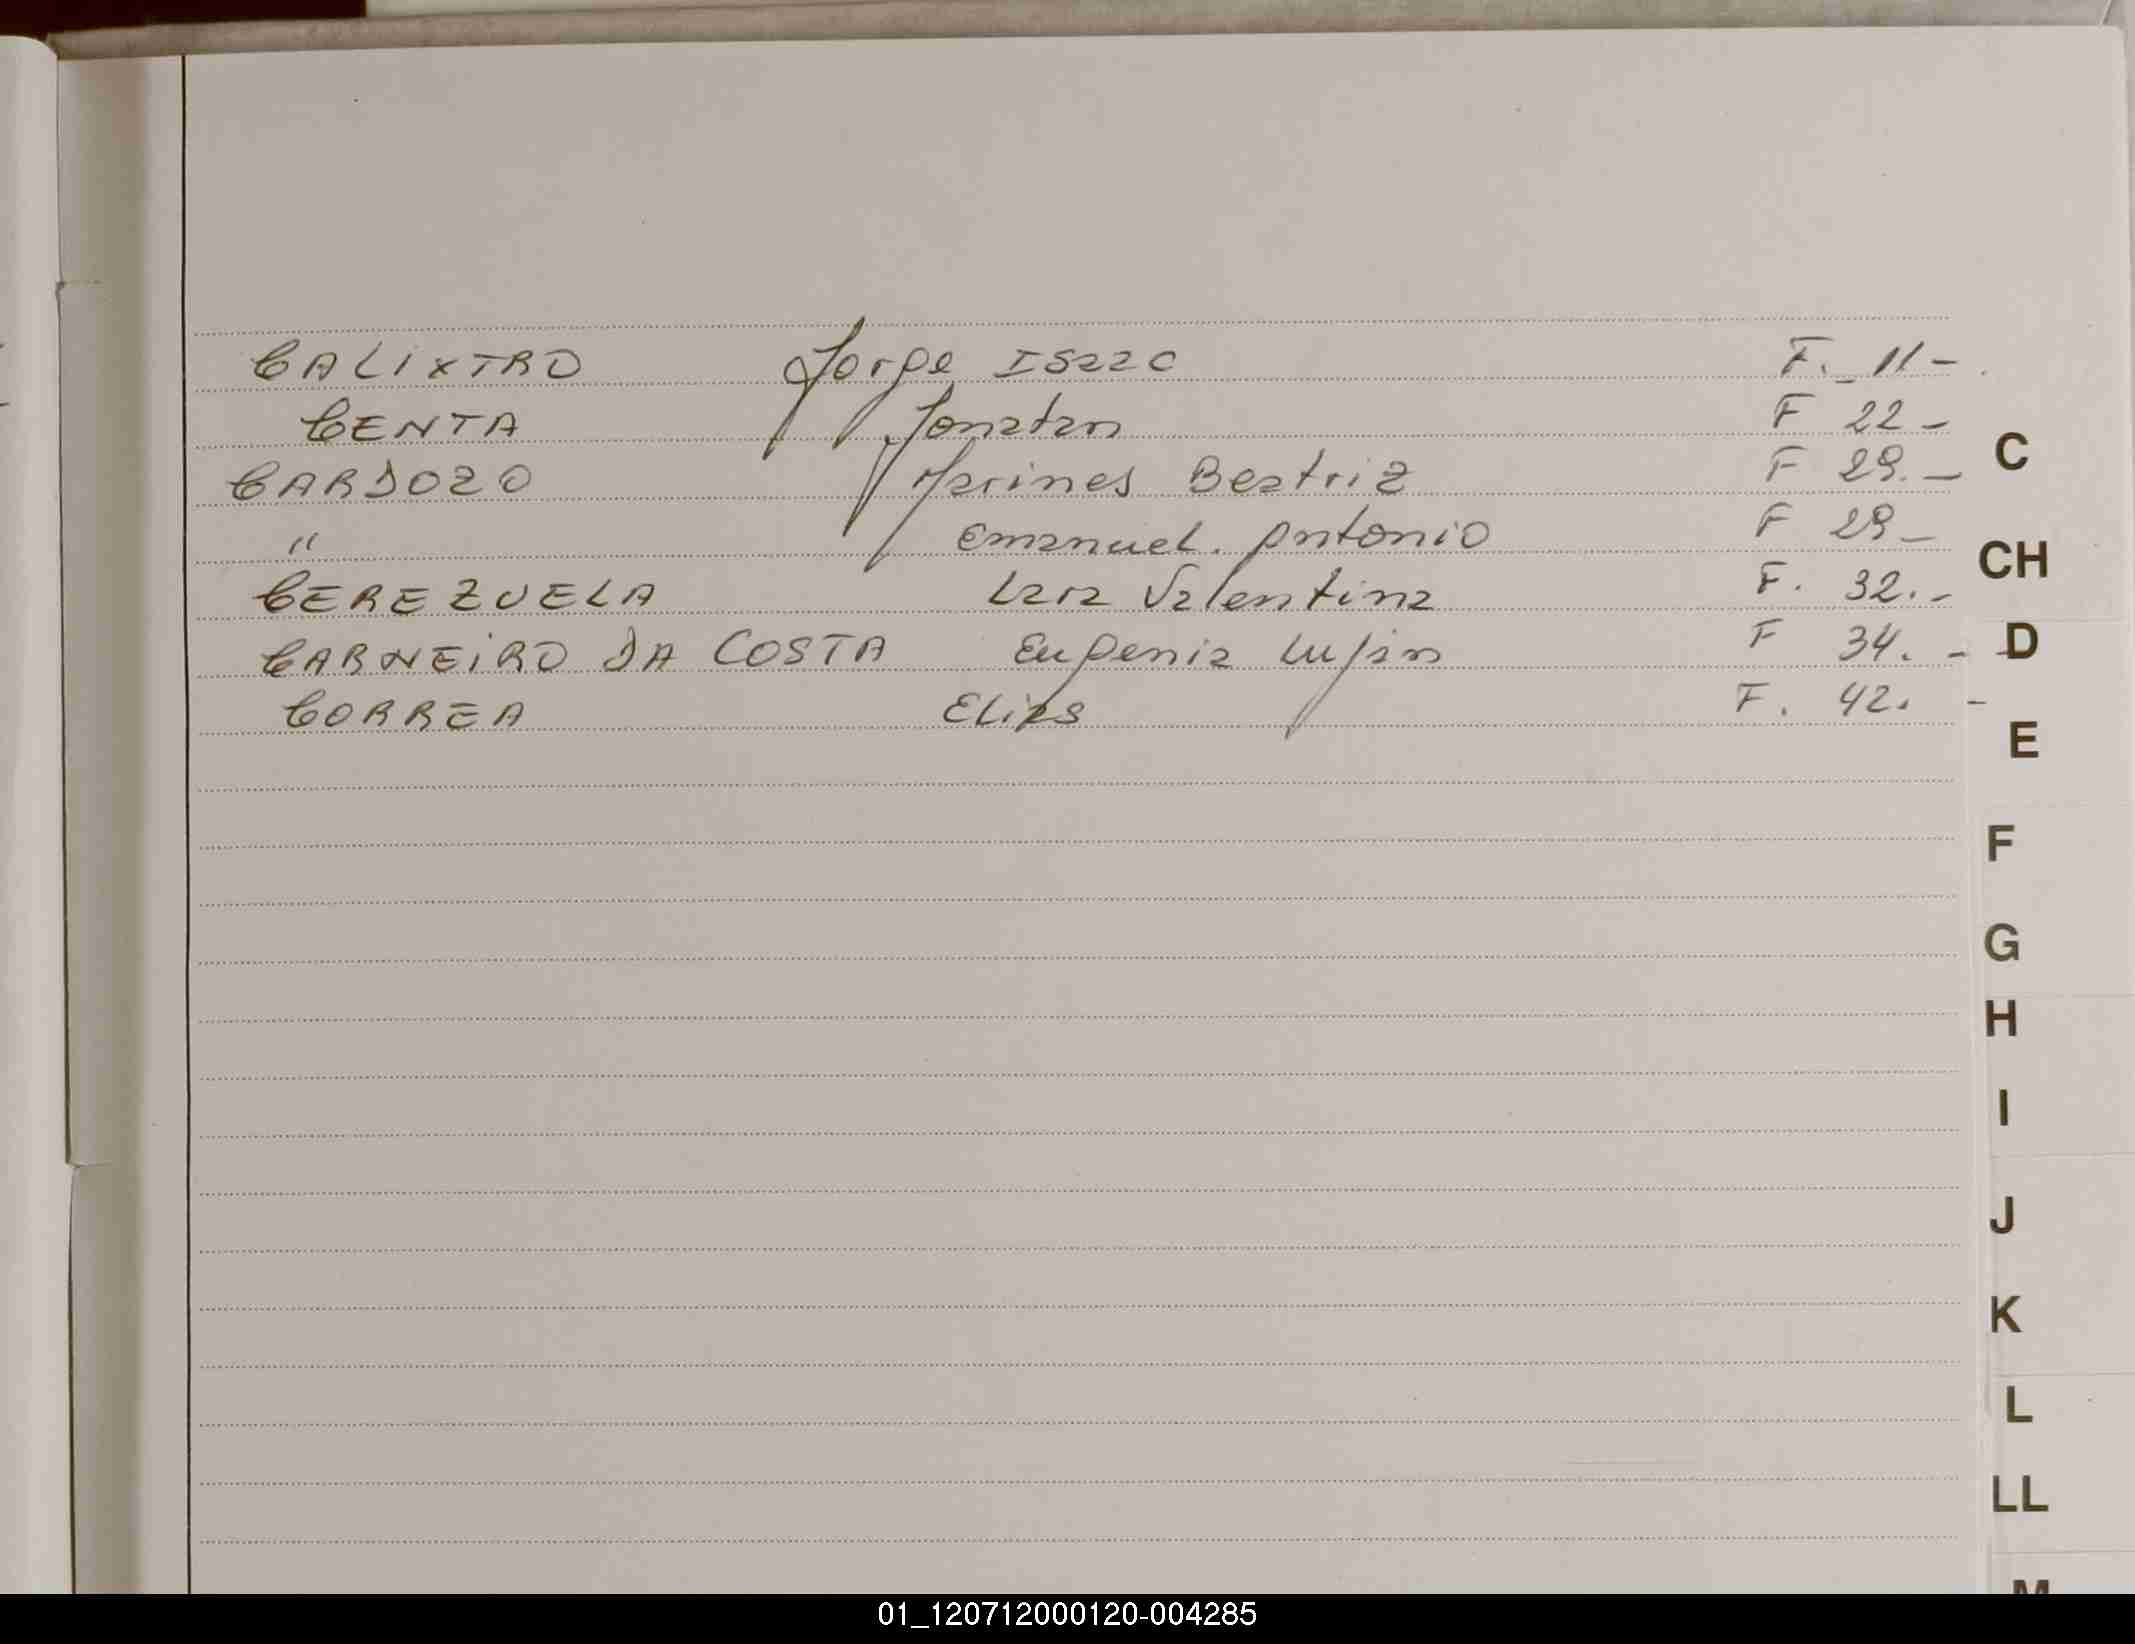 CALIXTRO Jorge Isaac F. 11-
CENTA Jonatan F 22-
CARDOZO Marines Beatriz F 29.-
" Emanuel. Antonio F 29-
CEREZUELA Lara Valentina F. 32.-
CARNEIRO DA COSTA Eugenia Lujan F 34.-
CORREA Elias F. 42. -
C
CH
D
E
F
G
H
I
J
K
L
LL
M
01_120712000120-004285